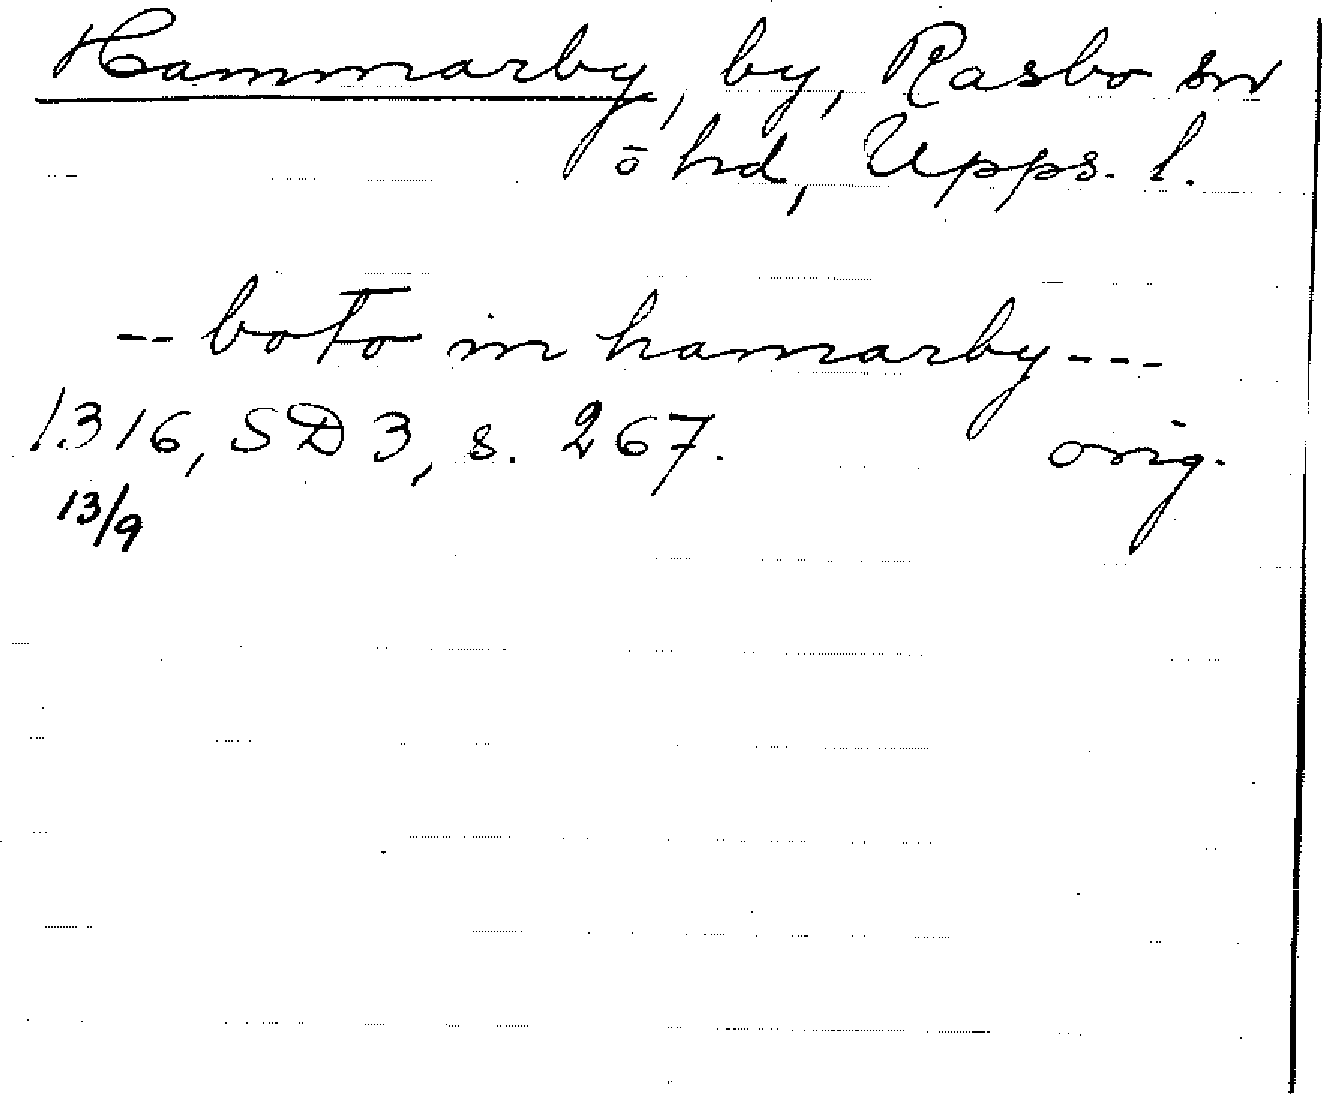 Hammarby, by, Rasbo sn
o hd, Upps. l.
-- boto in hamarby ---
1316, SD 3, s. 267. orig.
13/9